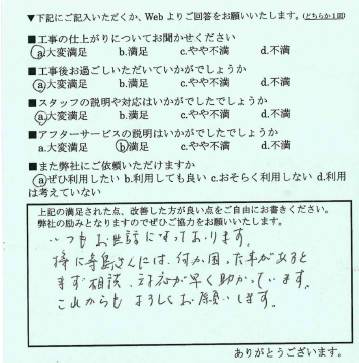 ▼下記にご記入いただくか、Webよりご回答をお願いいたします。(どちらか1回)
■工事の仕上がりについてお聞かせください
a.大変満足 b.満足 c.やや不満 d.不満
■工事後お過ごしいただいていかがでしょうか
a.大変満足 b.満足 c.やや不満 d.不満
■スタッフの説明や対応はいかがでしたでしょうか
a.大変満足 b.満足 c.やや不満 d.不満
■アフターサービスの説明はいかがでしたでしょうか
a.大変満足 b.満足 c.やや不満 d.不満
■また弊社にご依頼いただけますか
a.ぜひ利用したい b.利用しても良い c.おそらく利用しない d.利用
は考えていない
上記の満足された点、改善した方が良い点をご自由にお書きください。
弊社の励みとなりますのでぜひご協力をお願いいたします。
いつもお世話になっております。
特に寺島さんには、何か困った事があると
まず相談、対応が早く助かっています。
これからもよろしくお願いします。
ありがとうございます。